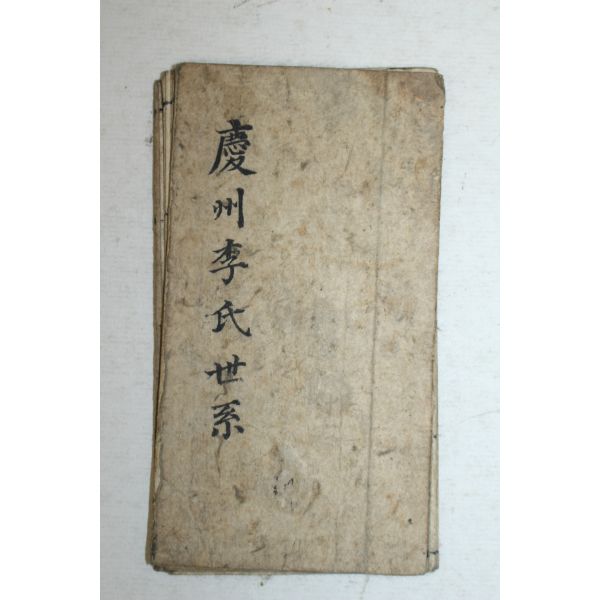 慶州李氏世系